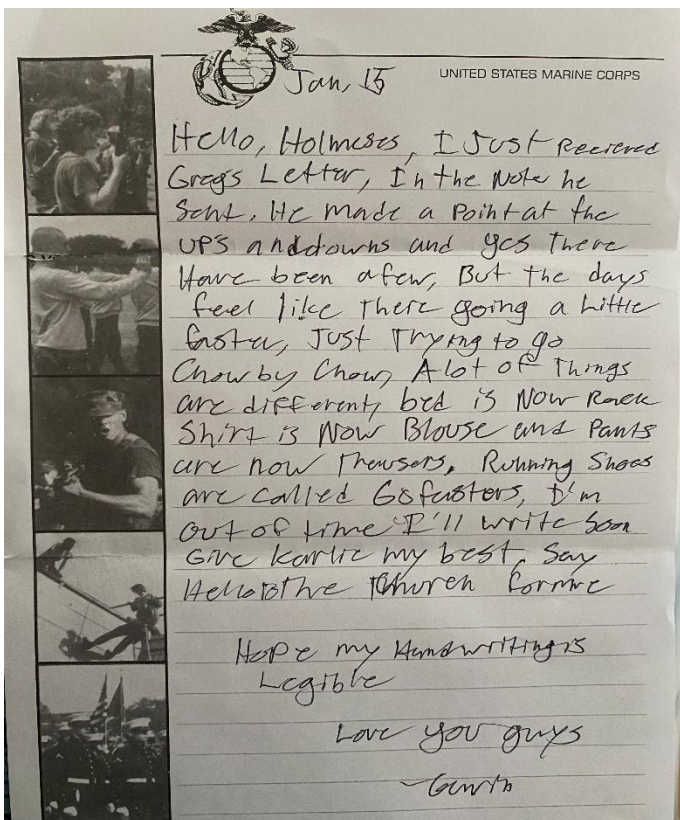 Jan, 15
UNITED STATES MARINE CORPS
Hello, Holmeses, I Just Recieved
Greg's Letter, In the Note he
Sent, He made a Point at the
UP'S and downs and yes There
Have been a few, But the days
feel like There going a Little
faster, Just Trying to go
Chow by Chow, A lot of Things
are different, bed is Now Rack
Shirt is Now Blouse and Pants
are now Thowsers, Running Shoes
are called Gofastors, I'm
out of time I'll write Soon
Give Karlie my best, Say
Hello to the Church for me
Hope my Handwriting is
Legible
Love you guys